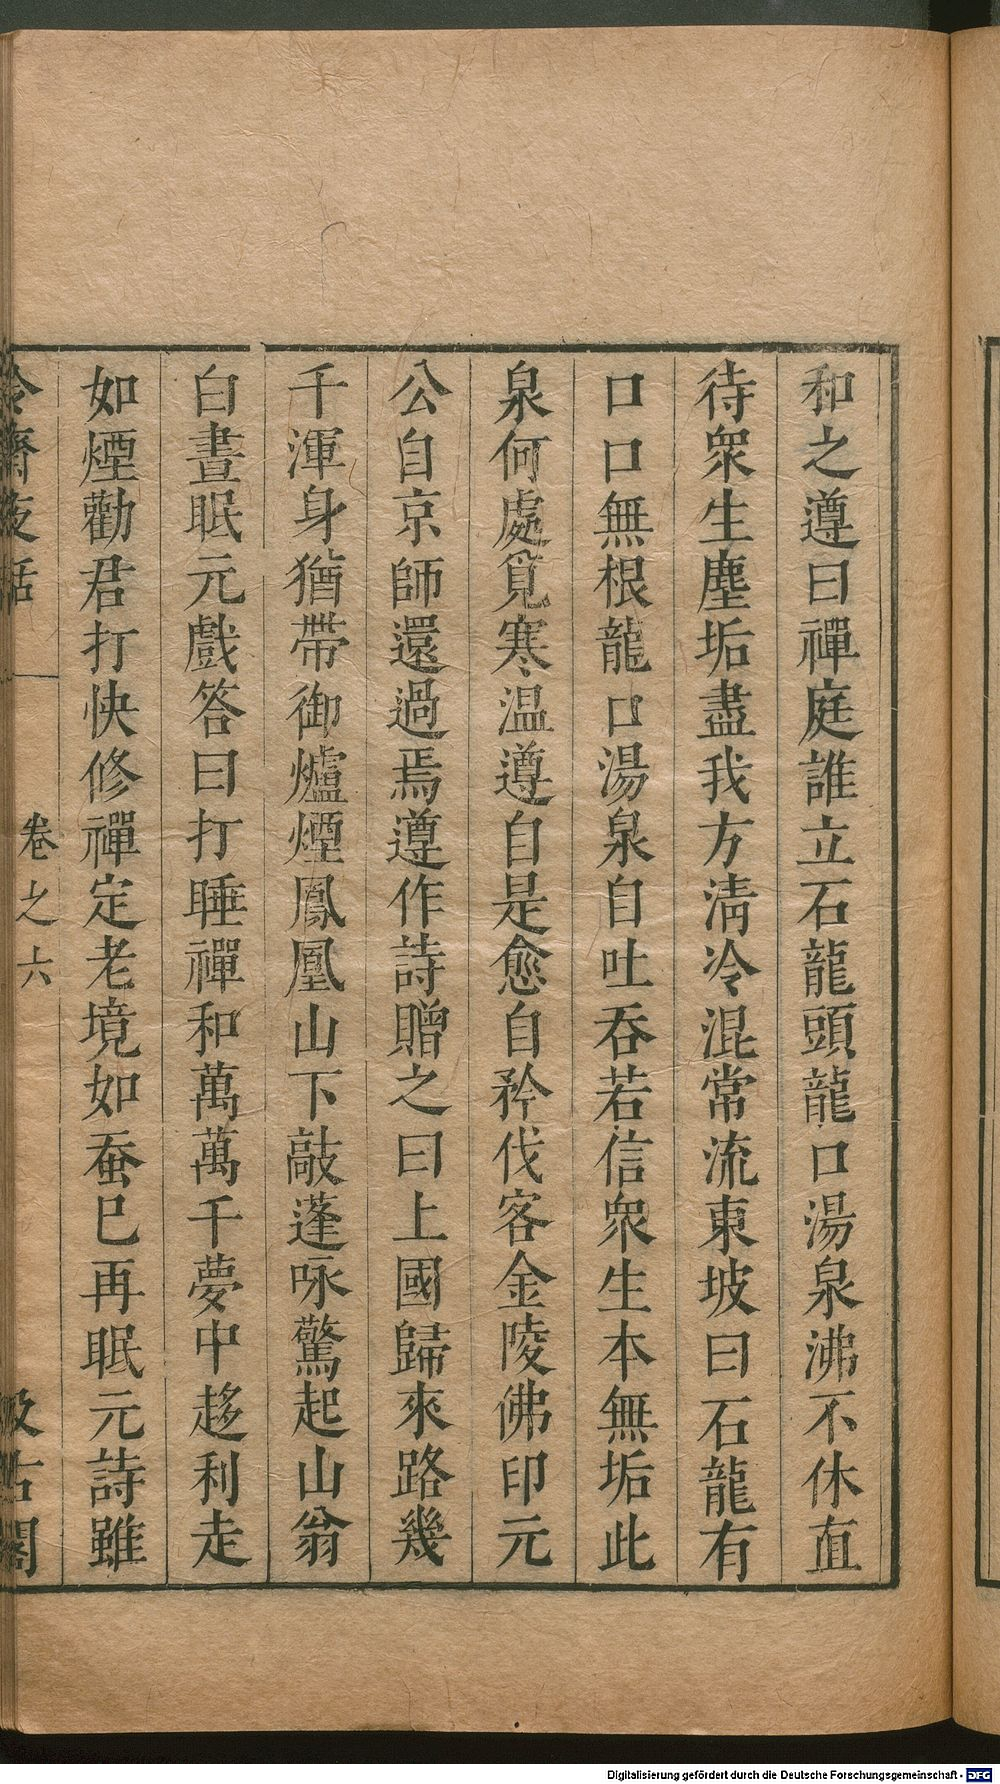 和之遵曰禪庭誰立石龍頭龍口湯泉沸不休直
待衆生塵垢盡我方清冷混常流東坡曰石龍有
口口無根龍口湯泉自吐吞若信衆生本無垢此
泉何處覓寒温遵自是愈自矜伐客金陵佛印元
公自京師還過焉遵作詩贈之曰上國歸來路幾
千渾身猶帶御爐煙鳳凰山下敲蓬咏驚起山翁
白晝眠元戲答曰打睡禪和萬萬千夢中趍利走
如煙勸君打快修禪定老境如蚕巳再眠元詩雖
冷齋夜話 卷之六 汲古閣
Digitalisierung gefördert durch die Deutsche Forschungsgemeinschaft - DFG